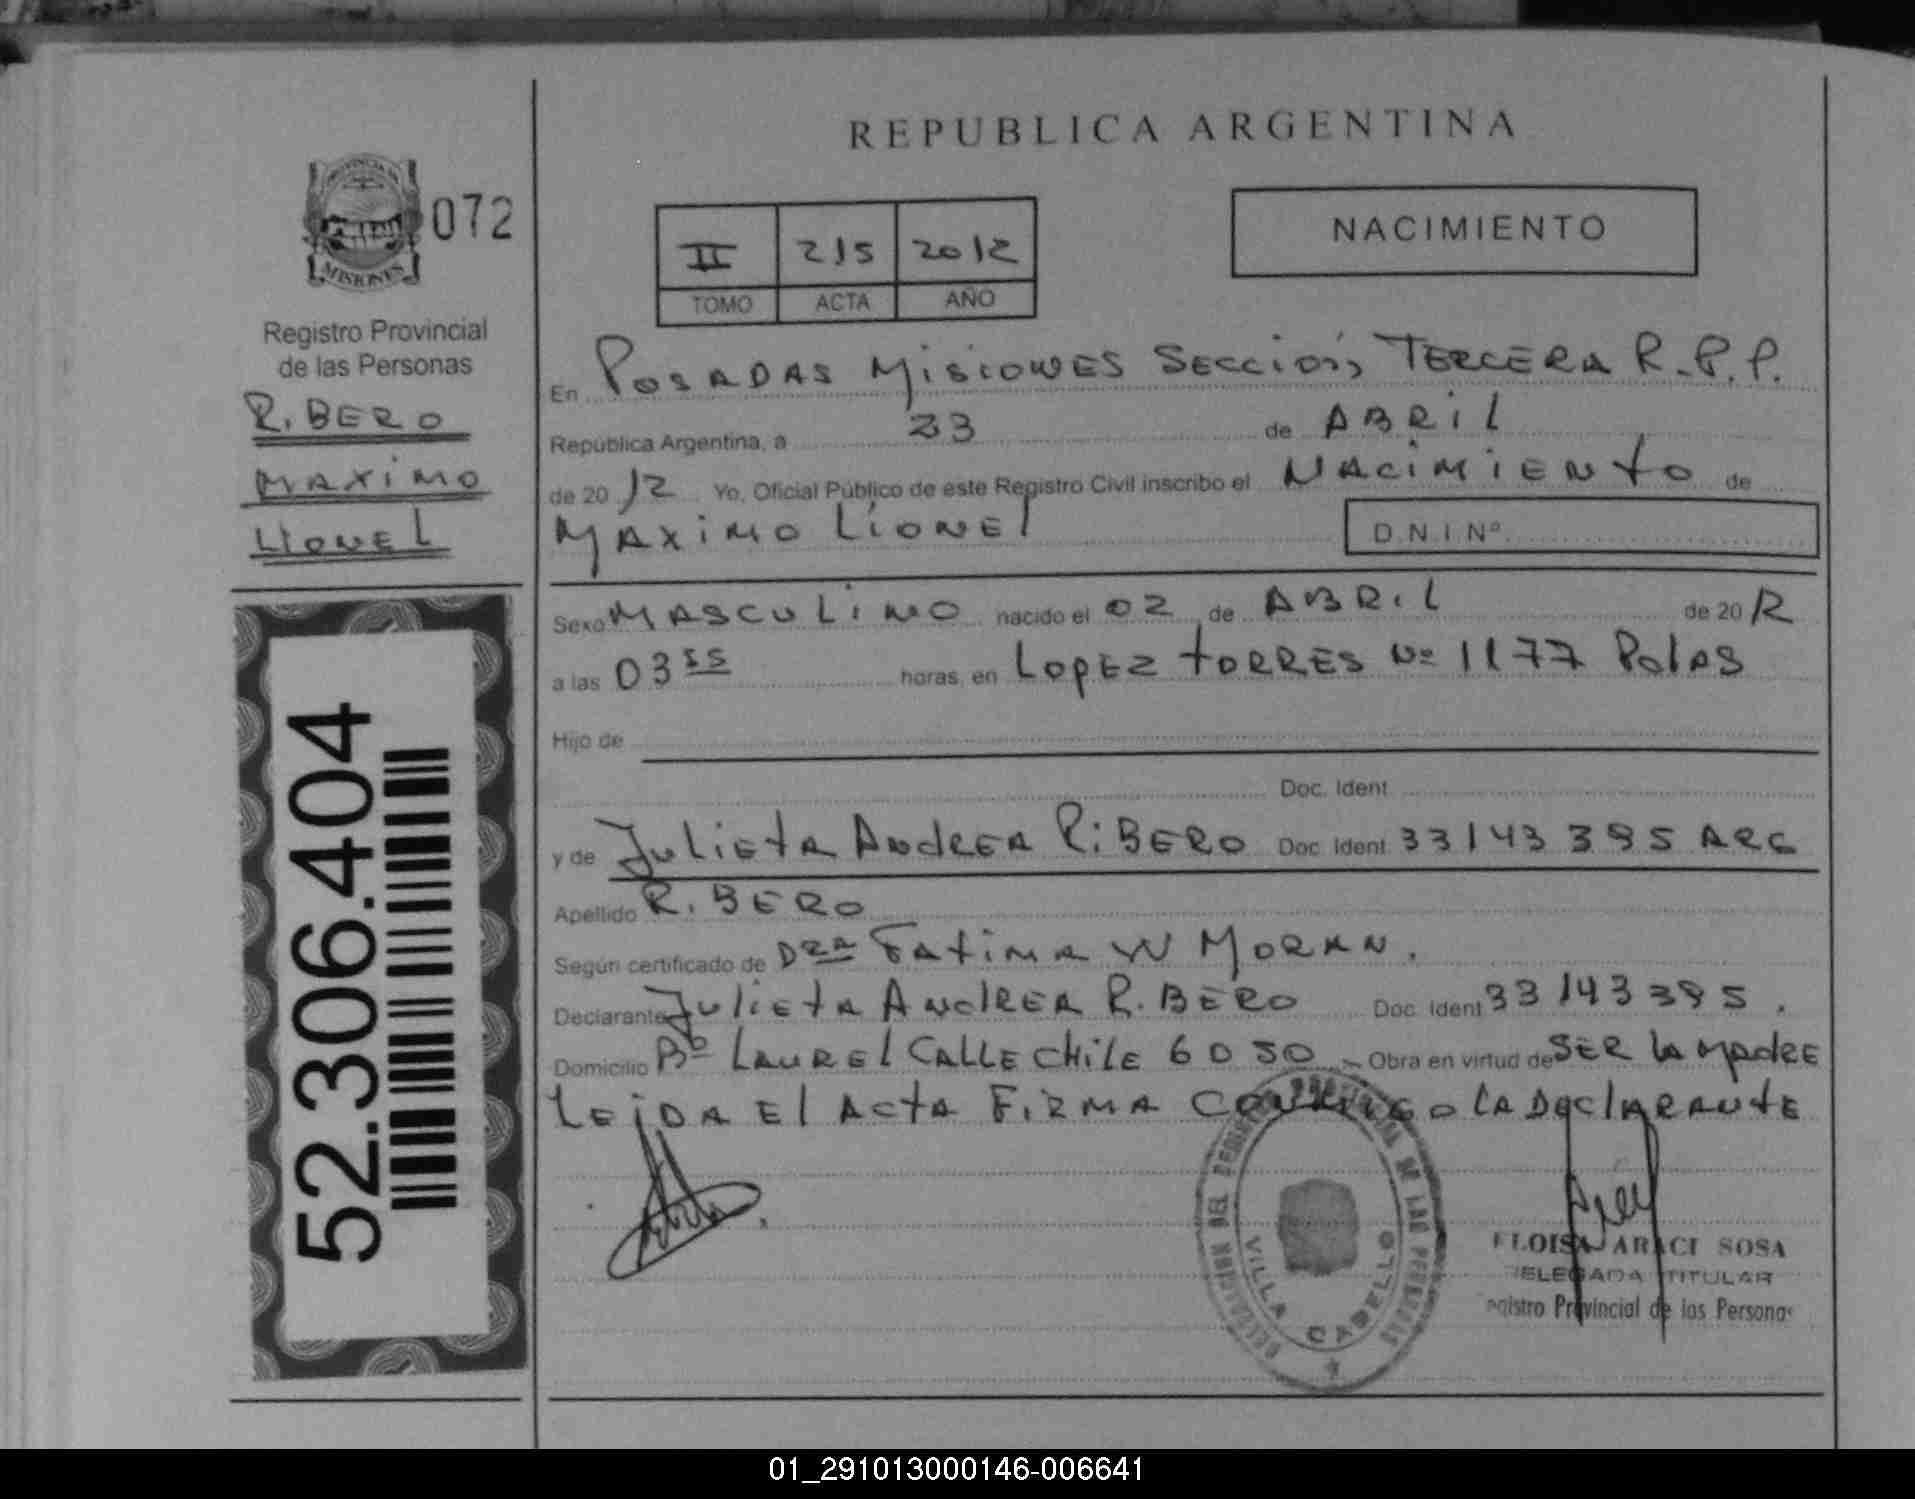 REPUBLICA ARGENTINA
PROVINCIA DE
MISIONES
072
Registro Provincial
de las Personas
RIBERO
MAXIMO
LIONEL
52.306.404
II 215 2012
TOMO ACTA AÑO
NACIMIENTO
En POSADAS MISIONES SECCIÓN TERCERA R.P.P.
República Argentina, a 23 de ABRIL
de 2012 Yo, Oficial Público de este Registro Civil inscribo el NACIMIENTO de
MAXIMO LIONEL
D.N.I Nº
Sexo MASCULINO nacido el 02 de ABRIL de 2012
a las 03 55 horas, en LOPEZ TORRES Nº 1177 PDAS
Hijo de
Doc. Ident
y de JULIETA ANDREA RIBERO Doc. Ident. 33143395 ARG
Apellido RIBERO
Según certificado de DRA FATIMA W MORAN.
Declarante JULIETA ANDREA RIBERO Doc. Ident 33143395.
Domicilio Bº LAUREL CALLE CHILE 6050 Obra en virtud de SER LA MADRE
LEIDA El ACTA FIRMA CONMIGO LA DECLARANTE
DELEGACION DEL REGISTRO PROVINCIAL DE LAS PERSONAS
VILLA CABELLO
ELOISA ARACI SOSA
DELEGADA TITULAR
Registro Provincial de las Personas
01_291013000146-006641